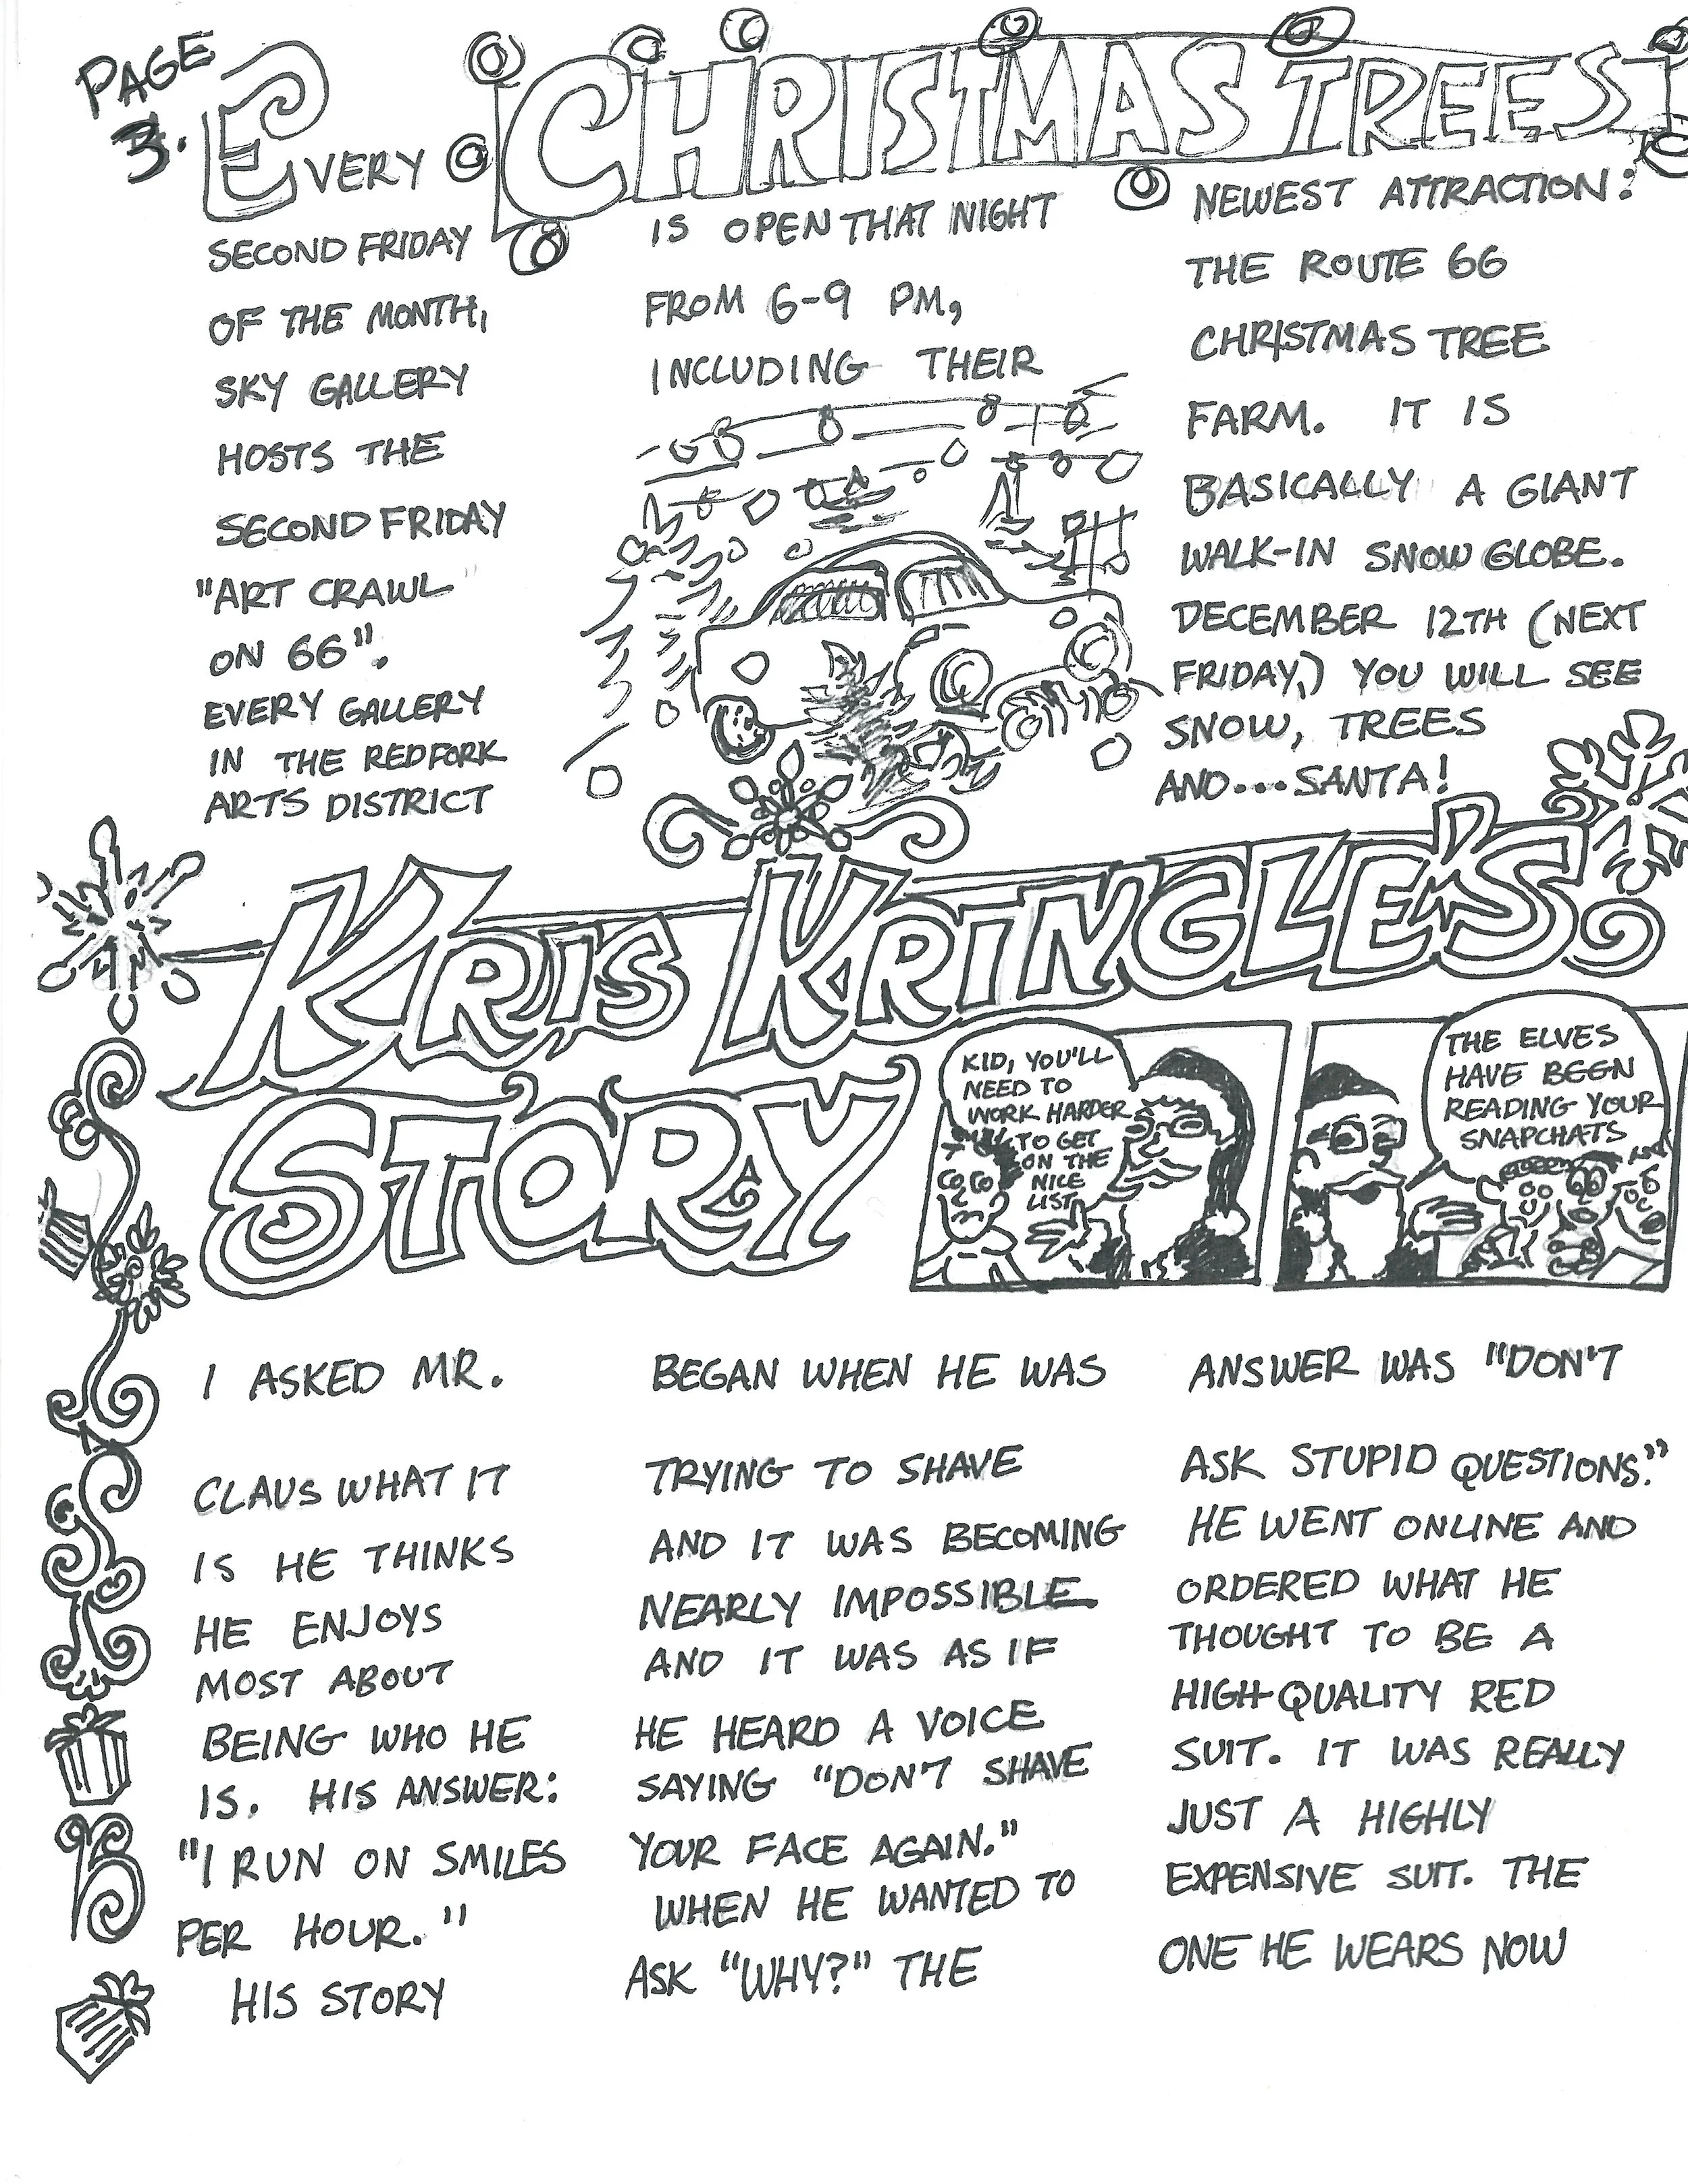 PAGE
3.
CHRISTMAS TREES
EVERY
SECOND FRIDAY
OF THE MONTH,
SKY GALLERY
HOSTS THE
SECOND FRIDAY
"ART CRAWL"
ON 66".
EVERY GALLERY
IN THE REDFORK
ARTS DISTRICT
IS OPEN THAT NIGHT
FROM 6-9 PM,
INCLUDING THEIR
NEWEST ATTRACTION:
THE ROUTE 66
CHRISTMAS TREE
FARM. IT IS
BASICALLY A GIANT
WALK-IN SNOW GLOBE.
DECEMBER 12TH (NEXT
FRIDAY,) YOU WILL SEE
SNOW, TREES
AND...SANTA!
KRIS KRINGLE'S
STORY
KID, YOU'LL
NEED TO
WORK HARDER
TO GET
ON THE
NICE
LIST
THE ELVES
HAVE BEEN
READING YOUR
SNAPCHATS
I ASKED MR.
CLAUS WHAT IT
IS HE THINKS
HE ENJOYS
MOST ABOUT
BEING WHO HE
IS. HIS ANSWER:
"I RUN ON SMILES
PER HOUR."
HIS STORY
BEGAN WHEN HE WAS
TRYING TO SHAVE
AND IT WAS BECOMING
NEARLY IMPOSSIBLE
AND IT WAS AS IF
HE HEARD A VOICE
SAYING "DON'T SHAVE
YOUR FACE AGAIN."
WHEN HE WANTED TO
ASK "WHY?" THE
ANSWER WAS "DON'T
ASK STUPID QUESTIONS."
HE WENT ONLINE AND
ORDERED WHAT HE
THOUGHT TO BE A
HIGH-QUALITY RED
SUIT. IT WAS REALLY
JUST A HIGHLY
EXPENSIVE SUIT. THE
ONE HE WEARS NOW